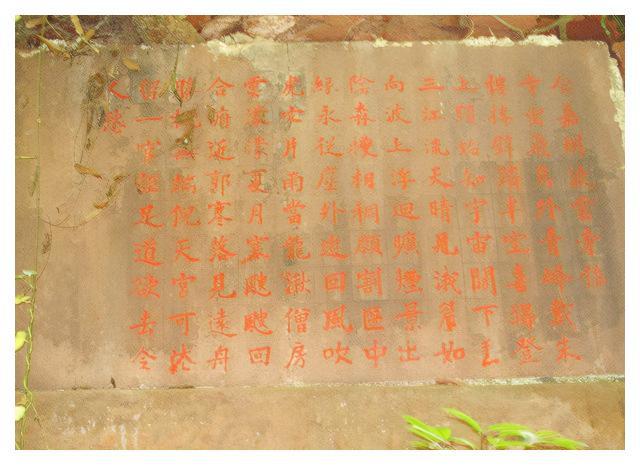 登嘉州凌雲寺作
寺出飛鳥外青峰戴朱
樓搏壁躋半空喜得登
上頭始知宇宙闊下看
三江流天晴見峨眉如
向波上浮迥曠煙景出
陰森椶楠稠願割區中
緣永從塵外遊回風吹
虎穴片雨當龍湫僧房
雲濛濛夏月寒颼颼回
合俯近郭寥落見遠舟
勝概無端倪天宮可淹
留一官詎足道欲去令
人愁